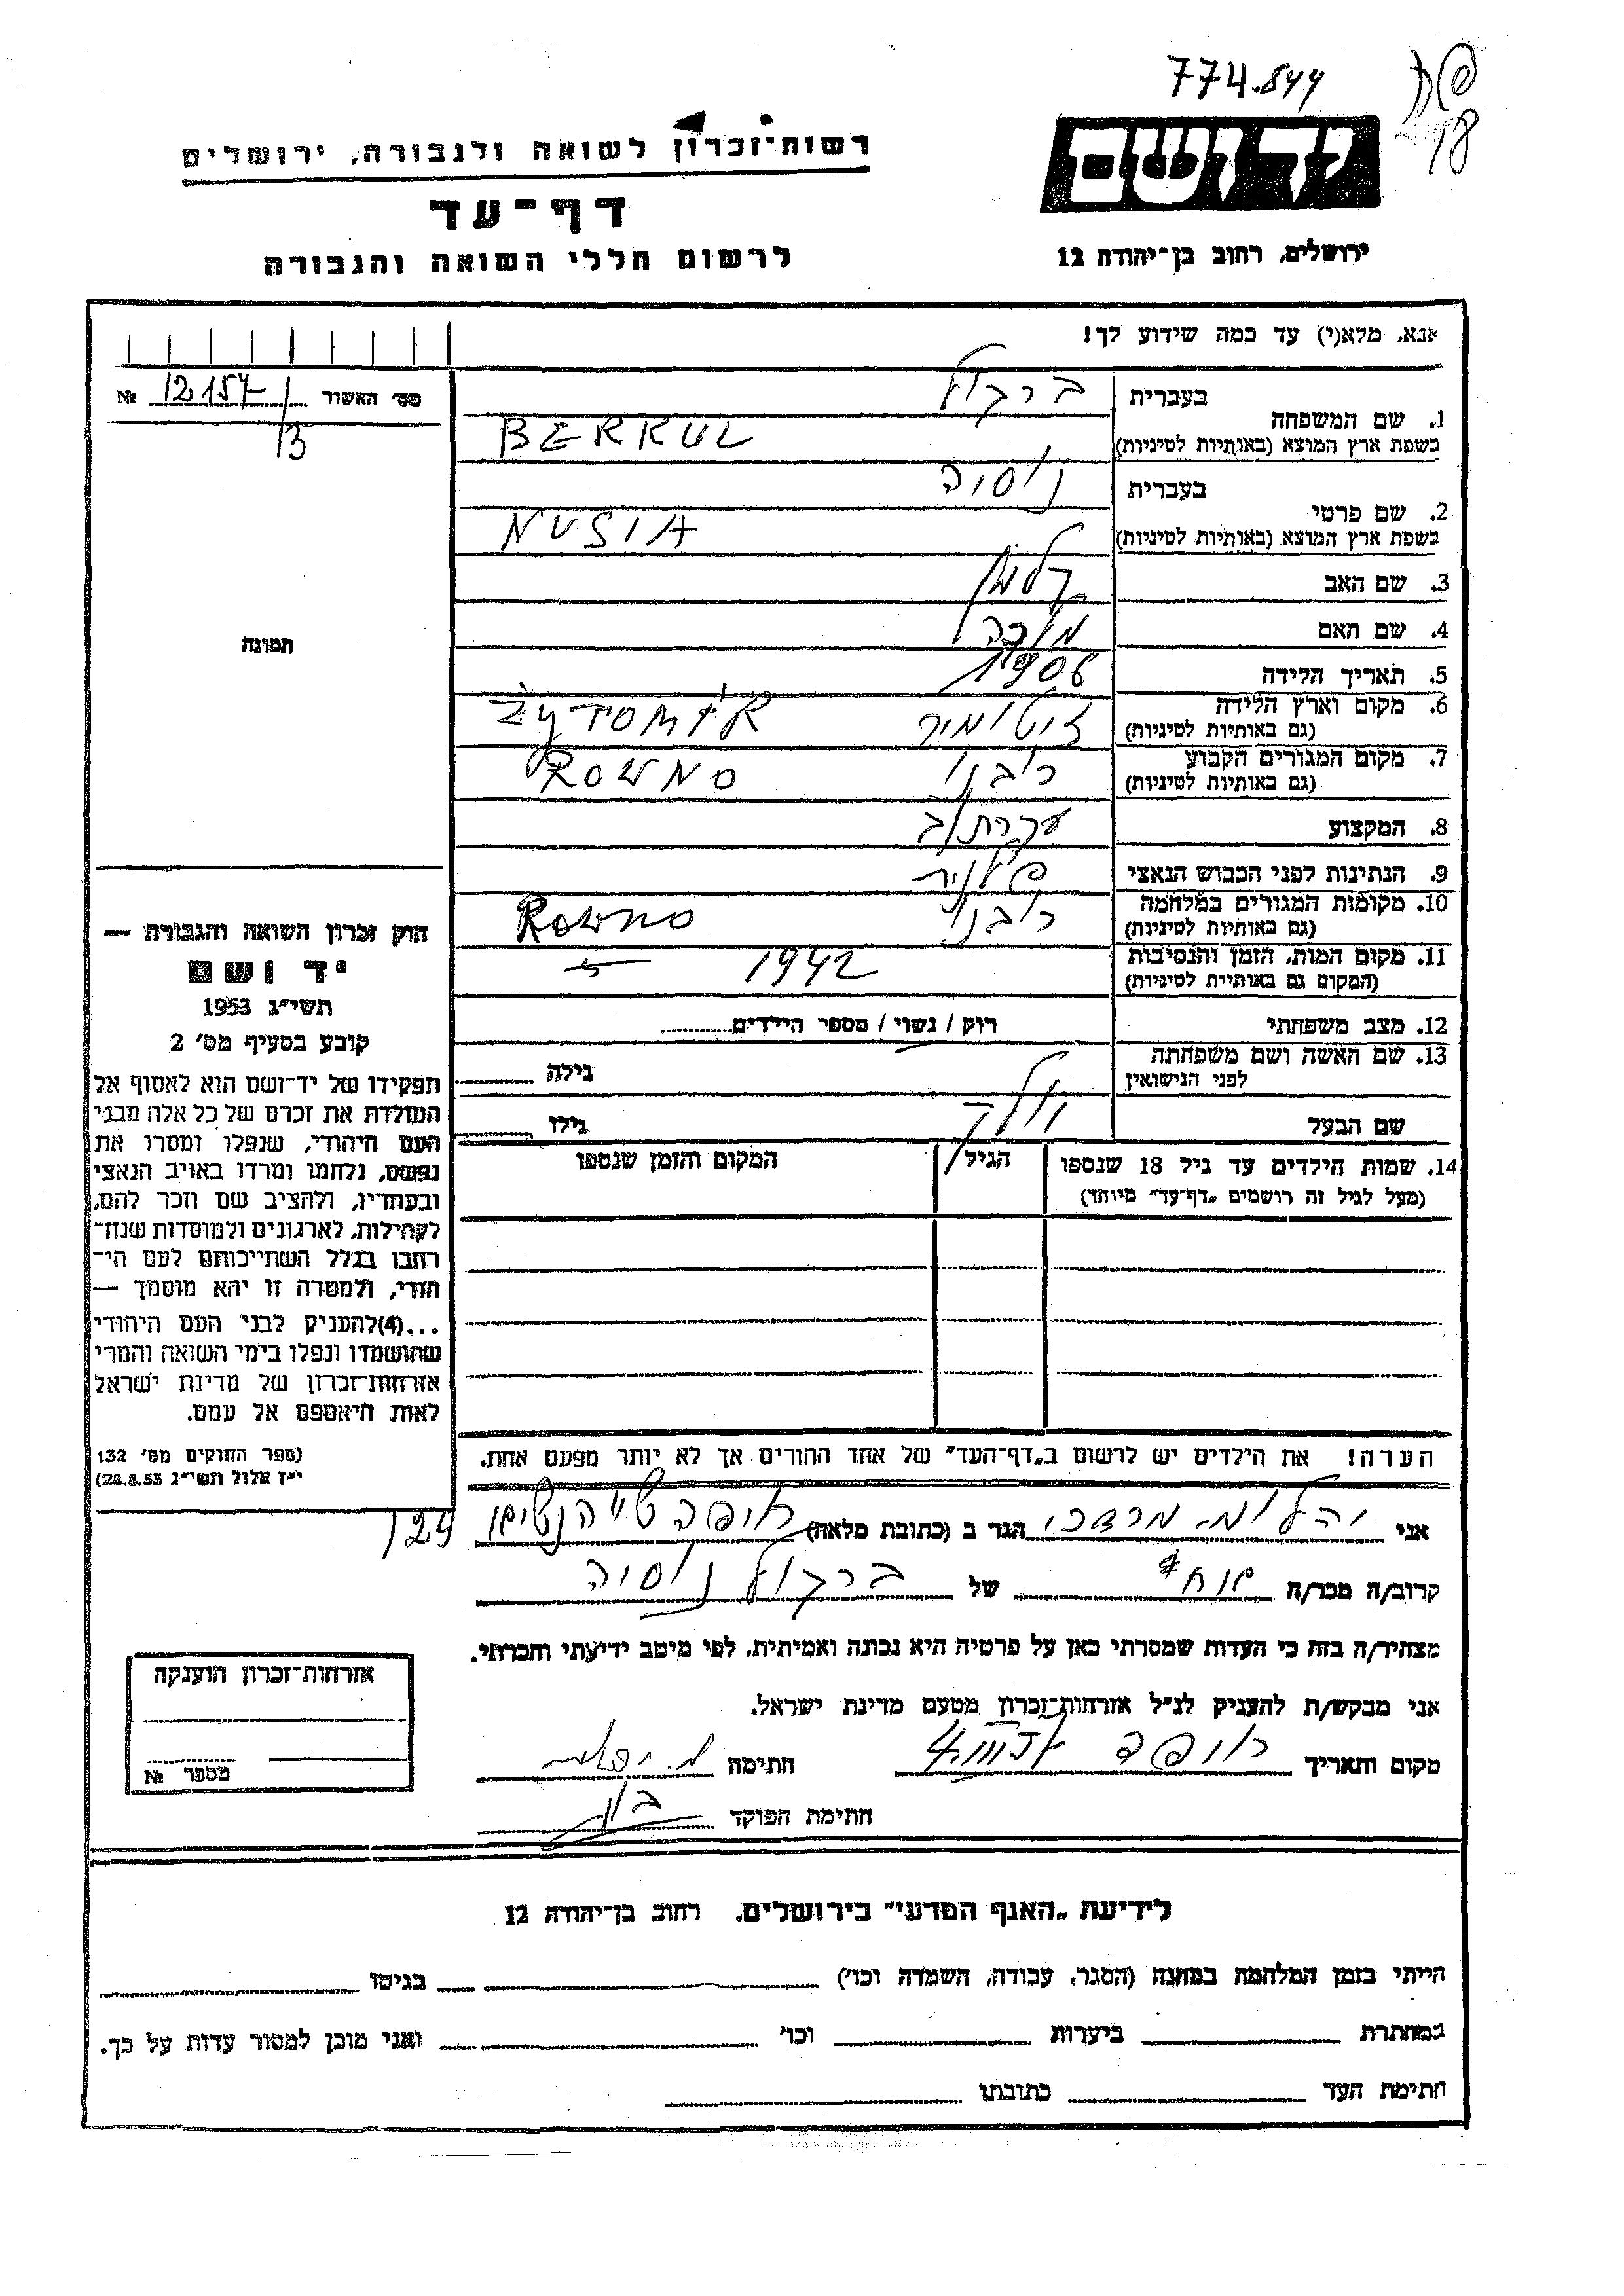 774.844
רשות־זכרון לשואה ולגבורה, ירושלים
יד ושם
דף־עד
לרשום חללי השואה והגבורה
ירושלים, רחוב בן־יהודה 12
אנא, מלא(י) עד כמה שידוע לך!
מס׳ האשור № 12154
13
1. שם המשפחה
בעברית ברקול
בשפת ארץ המוצא (באותיות לטיניות) BERKUL
2. שם פרטי
בעברית נוסיה
בשפת ארץ המוצא (באותיות לטיניות) NUSIA
3. שם האב קלמן
4. שם האם מלכה
תמונה
5. תאריך הלידה 1908
6. מקום וארץ הלידה זיטומיר ŻYTOMIR
(גם באותיות לטיניות)
7. מקום המגורים הקבוע רובנו ROWNO
(גם באותיות לטיניות)
8. המקצוע עקרת/ב
9. הנתינות לפני הכבוש הנאצי פולנית
10. מקומות המגורים במלחמה רובנו Rowno
(גם באותיות לטיניות)
11. מקום המות, הזמן והנסיבות 1942
(המקום גם באותיות לטיניות)
12. מצב משפחתי רוק / נשוי / מספר הילדים
13. שם האשה ושם משפחתה גילה
לפני הנישואין
שם הבעל גילו
14. שמות הילדים עד גיל 18 שנספו הגיל המקום והזמן שנספו
(מעל לגיל זה רושמים „דף־עד” מיוחד)
חוק זכרון השואה והגבורה —
יד ושם
תשי״ג 1953
קובע בסעיף מס׳ 2
תפקידו של יד־ושם הוא לאסוף אל
המולדת את זכרם של כל אלה מבני
העם היהודי, שנפלו ומסרו את
נפשם, נלחמו ומרדו באויב הנאצי
ובעוזריו, ולהציב שם וזכר להם,
לקהילות, לארגונים ולמוסדות שנח־
רבו בגלל השתייכותם לעם הי־
הודי, ולמטרה זו יהא מוסמך —
...(4)להעניק לבני העם היהודי
שהושמדו ונפלו בימי השואה והמרי
אזרחות־זכרון של מדינת ישראל
לאות היאספם אל עמם.
(ספר החוקים מס׳ 132
י״ז אלול תשי״ג 28.8.53)
הערה! את הילדים יש לרשום ב„דף־העד” של אחד ההורים אך לא יותר מפעם אחת.
אני יהלום מרדכי הגר ב (כתובת מלאה) חיפה 124
קרוב/ה מכר/ה של ברקול נוסיה
מצהיר/ה בזה כי העדות שמסרתי כאן על פרטיה היא נכונה ואמיתית, לפי מיטב ידיעתי והכרתי.
אני מבקש/ת להעניק לנ״ל אזרחות־זכרון מטעם מדינת ישראל.
מקום ותאריך חיפה חתימה
חתימת הפוקד
אזרחות־זכרון הוענקה
מספר №
לידיעת „האגף המדעי” בירושלים, רחוב בן־יהודה 12
הייתי בזמן המלחמה במחנה (הסגר, עבודה, השמדה וכו׳) בגיטו
במחתרת ביערות וכו׳ ואני מוכן למסור עדות על כך.
חתימת העד כתובתו